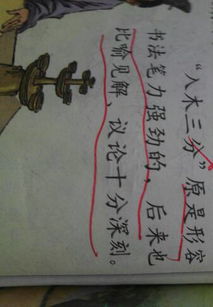 “入木三分”原是形容
书法笔力强劲的，后来也
比喻见解、议论十分深刻。